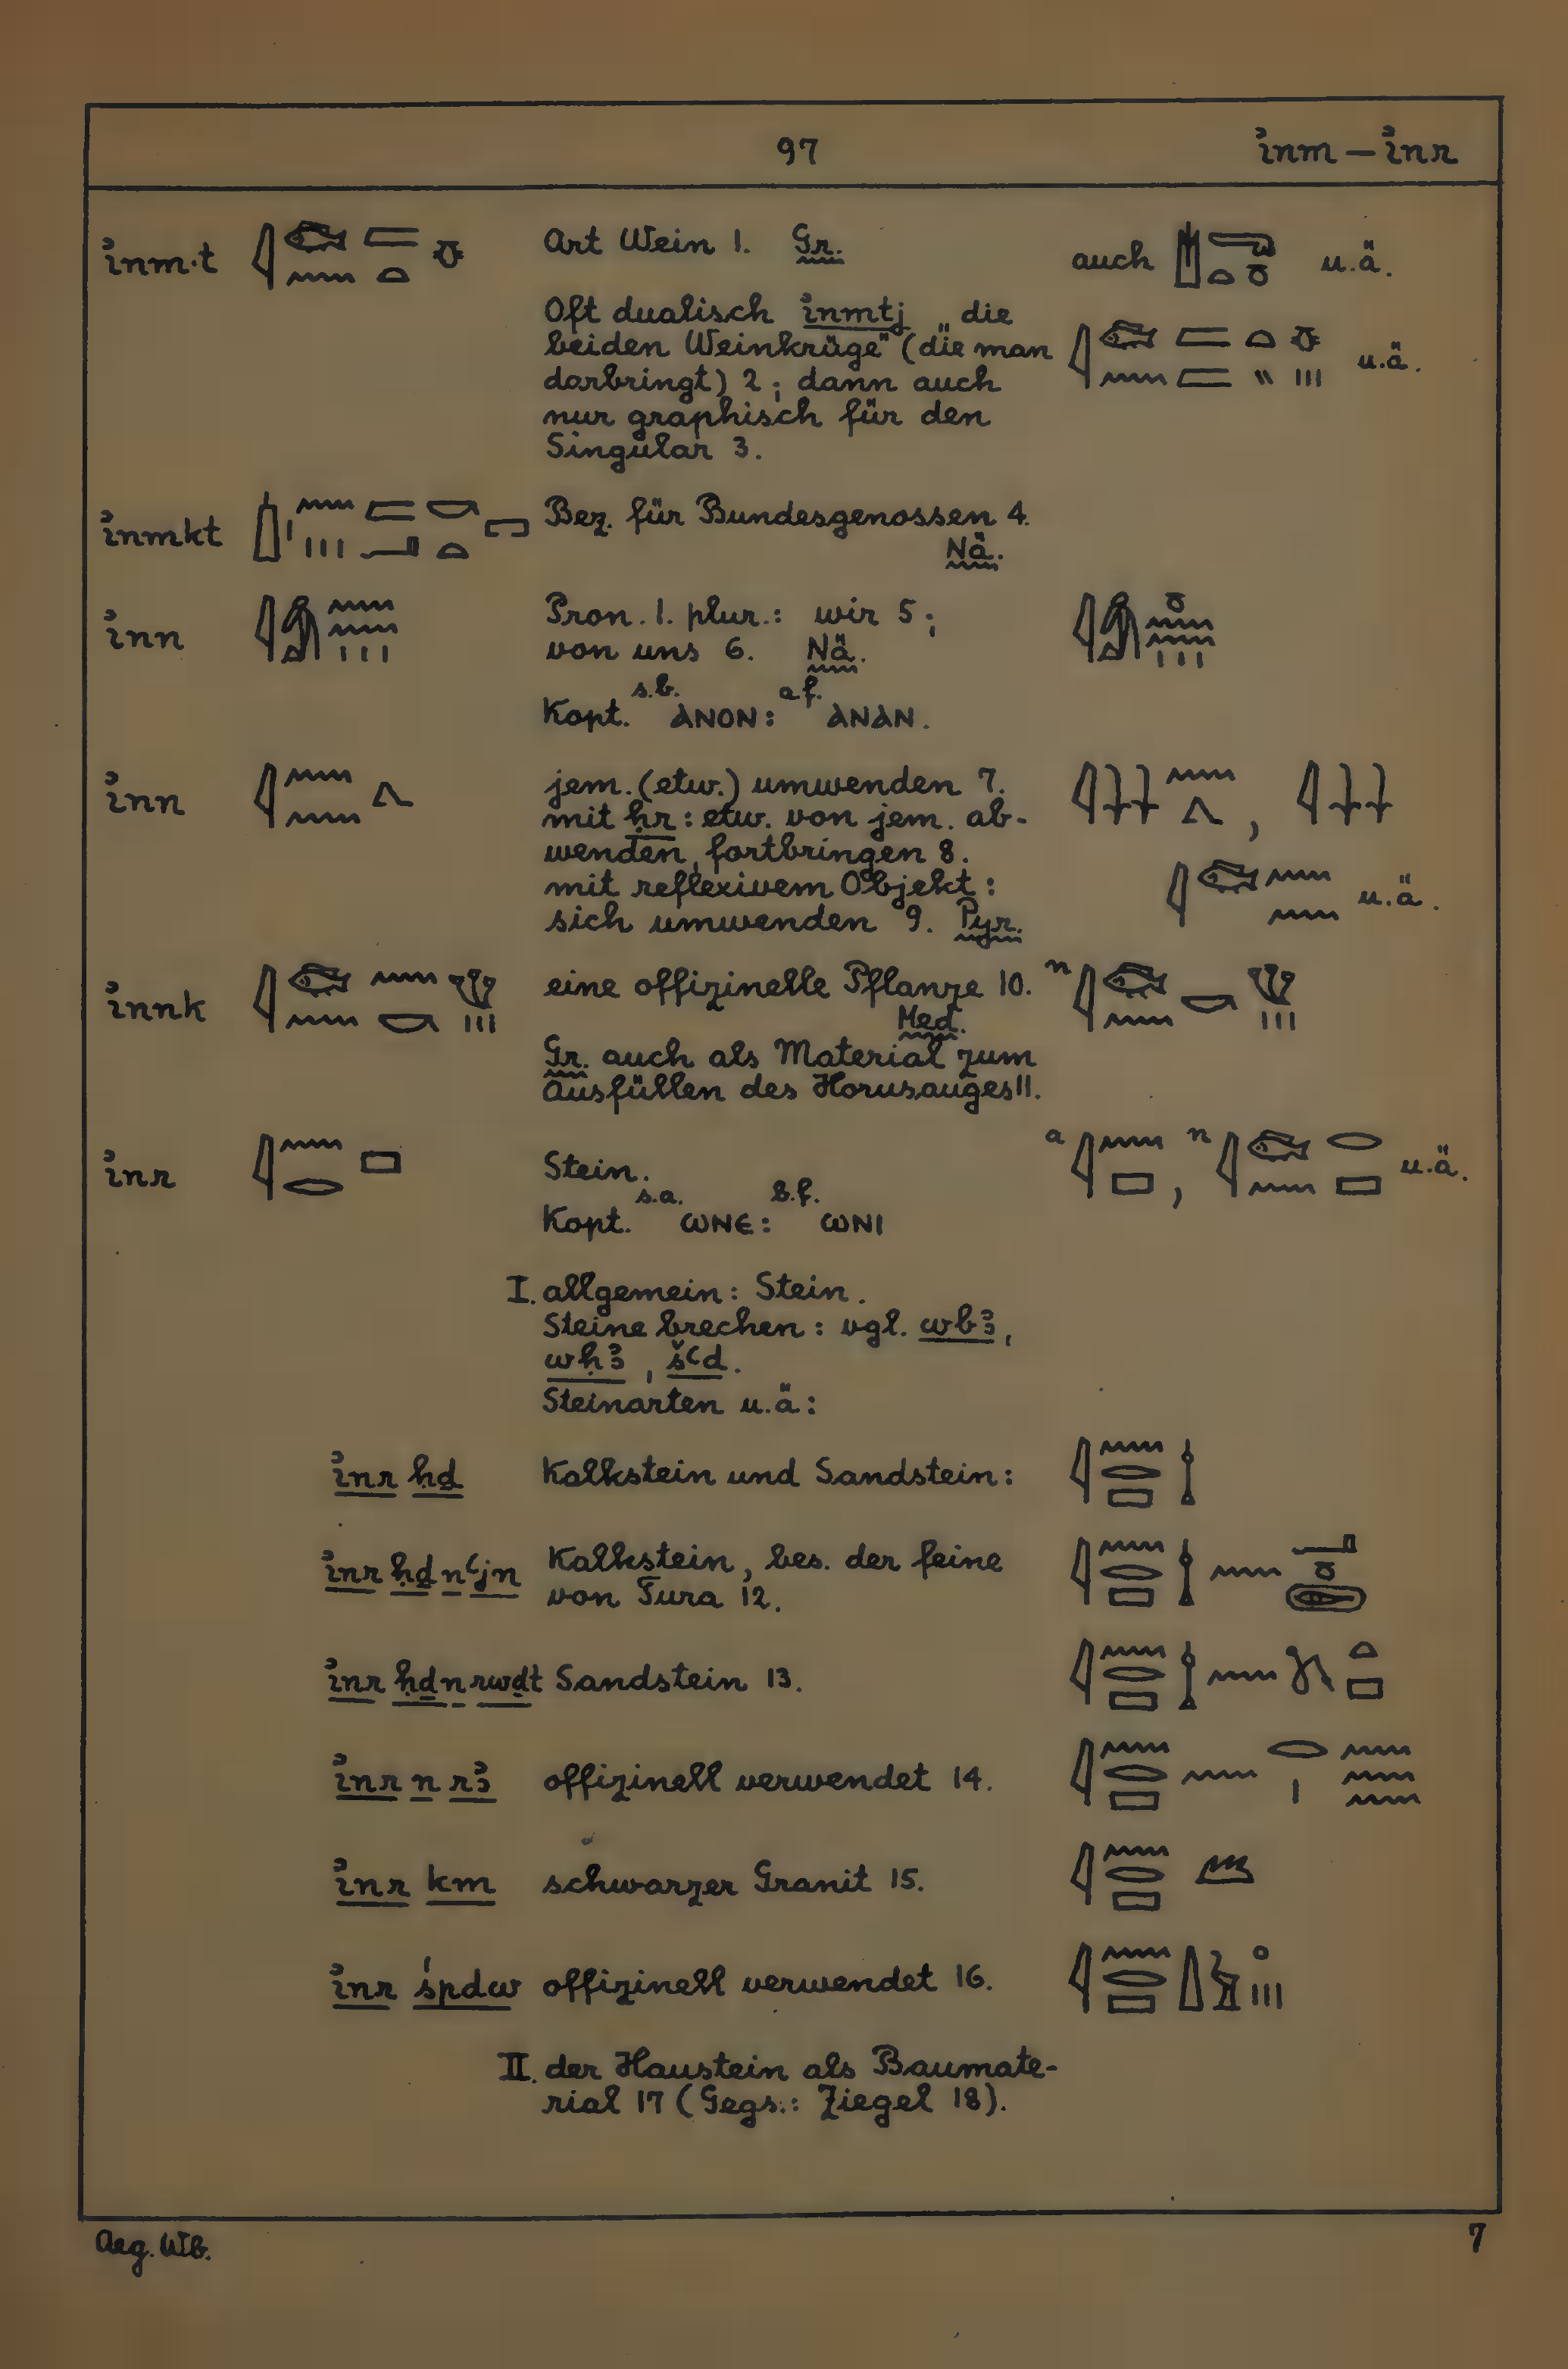 97 ı͗nm — ı͗nr
ı͗nm·t Art Wein 1. Gr. auch u.ä.
Oft dualisch ı͗nmtj „die
beiden Weinkrüge" (die man u.ä.
darbringt) 2; dann auch
nur graphisch für den
Singular 3.
ı͗nmkt Bez. für Bundesgenossen 4.
Nä.
ı͗nn Pron. 1. plur.: wir 5;
von uns 6. Nä.
Kopt. s.b. ⲁⲛⲟⲛ: a.f. ⲁⲛⲁⲛ.
ı͗nn jem. (etw.) umwenden 7.
mit ḥr: etw. von jem. ab-
wenden, fortbringen 8.
mit reflexivem Objekt: u.ä.
sich umwenden 9. Pyr.
ı͗nnk eine offizinelle Pflanze 10. n
Med.
Gr. auch als Material zum
Ausfüllen des Horusauges 11.
ı͗nr Stein. a , n u.ä.
Kopt. s.a. ⲱⲛⲉ: b.f. ⲱⲛⲓ
I. allgemein: Stein.
Steine brechen: vgl. wbꜣ,
wḥꜣ, šꜥd.
Steinarten u.ä:
ı͗nr ḥḏ Kalkstein und Sandstein:
ı͗nr ḥḏ n ꜥjn Kalkstein, bes. der feine
von Tura 12.
ı͗nr ḥḏ n rwḏt Sandstein 13.
ı͗nr n rꜣ offizinell verwendet 14.
ı͗nr km schwarzer Granit 15.
ı͗nr śpdw offizinell verwendet 16.
II. der Haustein als Baumate-
rial 17 (Gegs.: Ziegel 18).
Aeg. Wb. 7